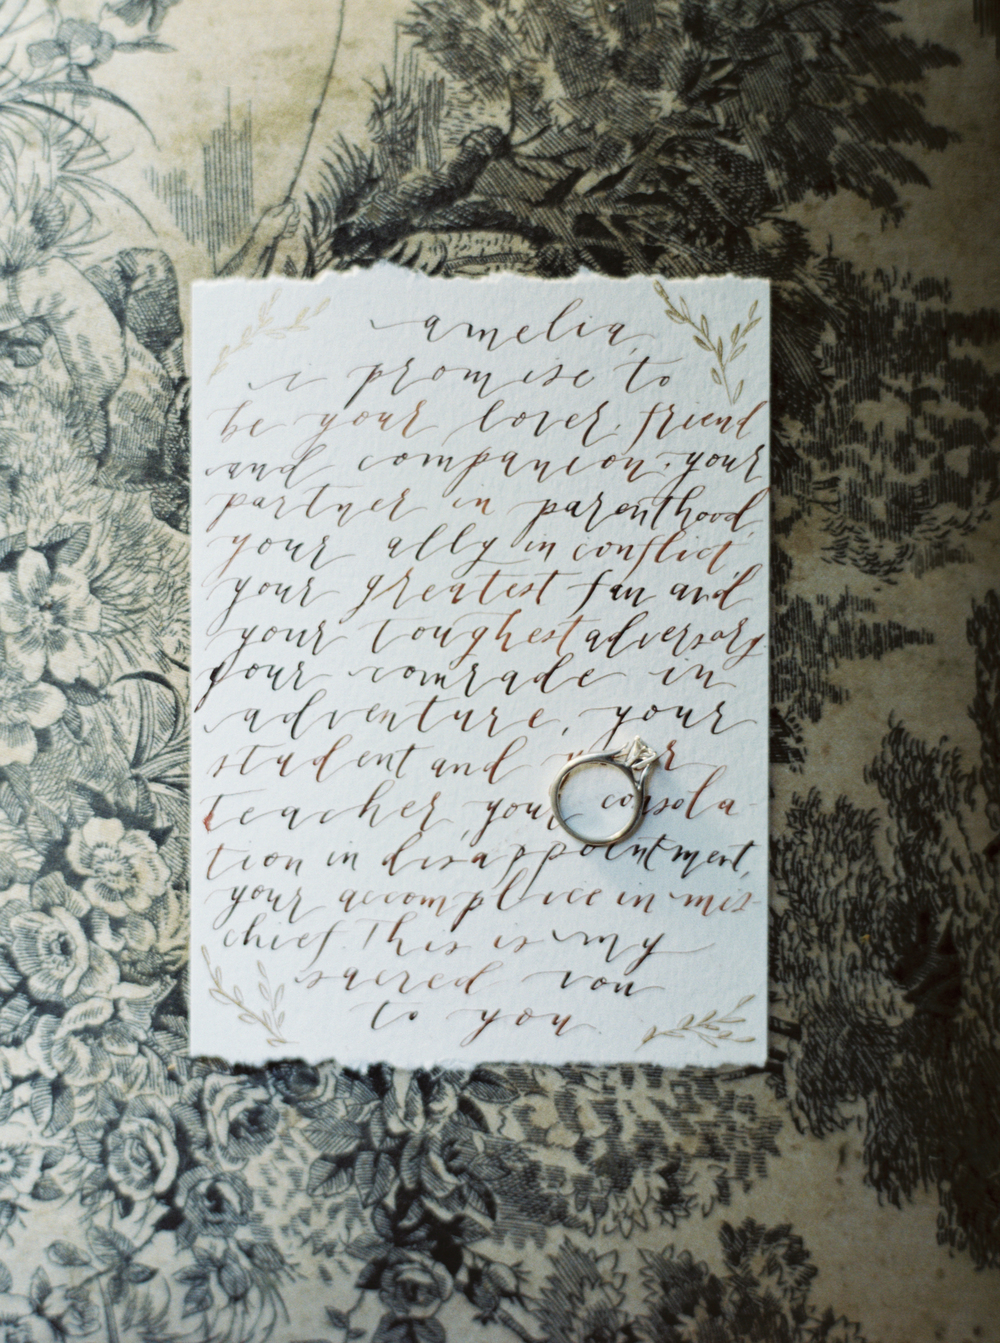 amelia,
i promise to
be your lover, friend
and companion, your
partner in parenthood,
your ally in conflict,
your greatest fan and
your toughest adversary,
your comrade in
adventure, your
student and your
teacher, your consola-
tion in disappointment,
your accomplice in mis-
chief. This is my
sacred vow
to you.